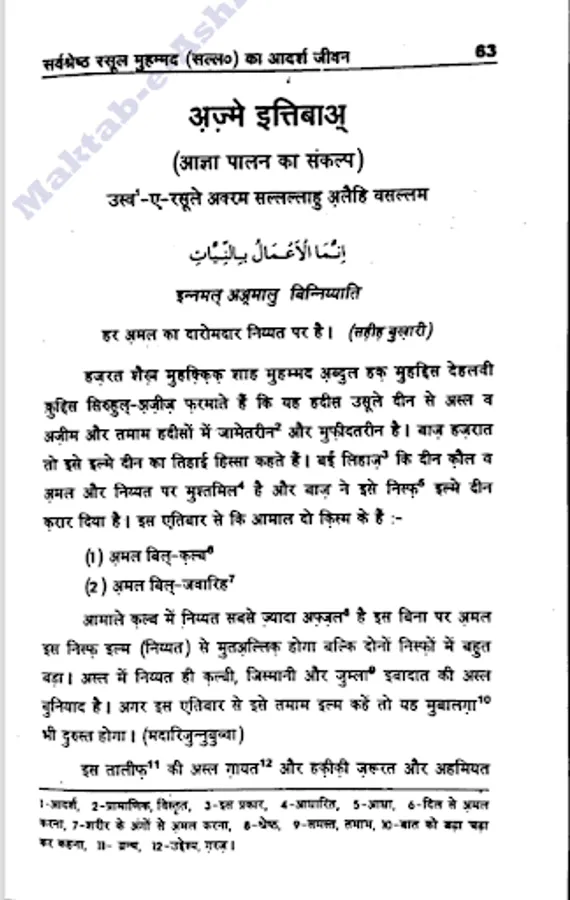 सर्वश्रेष्ठ रसूल मुहम्मद (सल्ल०) का आदर्श जीवन 63
Maktab-e-Ash
अ़ज़्मे इत्तिबाअ्
(आज्ञा पालन का संकल्प)
उस्व¹-ए-रसूले अकरम सल्लल्लाहु अ़लैहि वसल्लम
اِنَّمَا الْاَعْمَالُ بِالنِّيَّاتِ
इन्नमल् अअ़्मालु बिन्निय्याति
हर अ़मल का दारोमदार निय्यत पर है। (सहीह बुख़ारी)
हज़रत शैख़ मुहक़्क़िक़ शाह मुहम्मद अ़ब्दुल हक़ मुहद्दिस देहलवी
क़ुद्दिस सिरुहुल्-अ़ज़ीज़ फ़रमाते हैं कि यह हदीस उसूले दीन से अस्ल व
अ़ज़ीम और तमाम हदीसों में जामेतरीन² और मुफ़ीदतरीन है। बाज़ हज़रात
तो इसे इल्मे दीन का तिहाई हिस्सा कहते हैं। बईं लिहाज़³ कि दीन क़ौल व
अ़मल और निय्यत पर मुश्तमिल⁴ है और बाज़ ने इसे निस्फ़⁵ इल्मे दीन
क़रार दिया है। इस एतिबार से कि आमाल दो क़िस्म के हैं :-
(1) अ़मल बिल्-क़ल्ब⁶
(2) अ़मल बिल्-जवारिह⁷
आमाले क़ल्ब में निय्यत सबसे ज़्यादा अफ़्ज़ल⁸ है इस बिना पर अ़मल
इस निस्फ़ इल्म (निय्यत) से मुतअ़ल्लिक़ होगा बल्कि दोनों निस्फ़ों में बहुत
बड़ा। अस्ल में निय्यत ही क़ल्बी, जिस्मानी और जुम्ला⁹ इबादात की अस्ल
बुनियाद है। अगर इस एतिबार से इसे तमाम इल्म कहें तो यह मुबालग़ा¹⁰
भी दुरुस्त होगा। (मदारिजुन्नुबुव्वा)
इस तालीफ़¹¹ की अस्ल ग़ायत¹² और हक़ीक़ी ज़रूरत और अहमियत
1-आदर्श, 2-प्रामाणिक, विस्तृत, 3-इस प्रकार, 4-आधारित, 5-आधा, 6-दिल से अ़मल
करना, 7-शरीर के अंगों से अ़मल करना, 8-श्रेष्ठ, 9-समस्त, तमाम, 10-बात को बढ़ा चढ़ा
कर कहना, 11- ग्रन्थ, 12-उद्देश्य, ग़रज़।